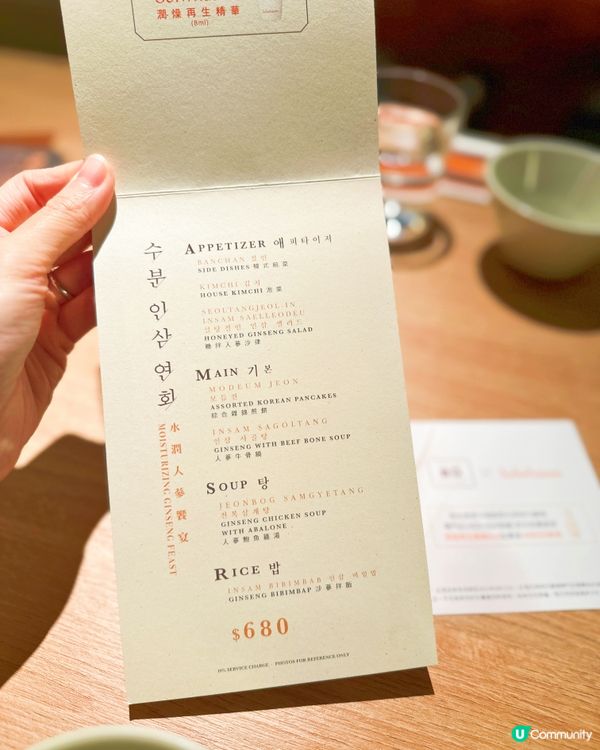 潤燥再生精華
(8ml)
수분 인삼 연회
水潤人參饗宴
MOISTURIZING GINSENG FEAST
APPETIZER 애피타이저
BANCHAN 반찬
SIDE DISHES 韓式前菜
KIMCHI 김치
HOUSE KIMCHI 泡菜
SEOLTANGJEOL-IN
INSAM SAELLEODEU
설탕절인 인삼 샐러드
HONEYED GINSENG SALAD
糖拌人參沙律
MAIN 기본
MODEUM JEON
모듬전
ASSORTED KOREAN PANCAKES
綜合雜錦煎餅
INSAM SAGOLTANG
인삼 사골탕
GINSENG WITH BEEF BONE SOUP
人參牛骨鍋
SOUP 탕
JEONBOG SAMGYETANG
전복삼계탕
GINSENG CHICKEN SOUP
WITH ABALONE
人參鮑魚雞湯
RICE 밥
INSAM BIBIMBAB 인삼 비빔밥
GINSENG BIBIMBAP 參拌飯
$680
10% SERVICE CHARGE PHOTOS FOR REFERENCE ONLY
U Community